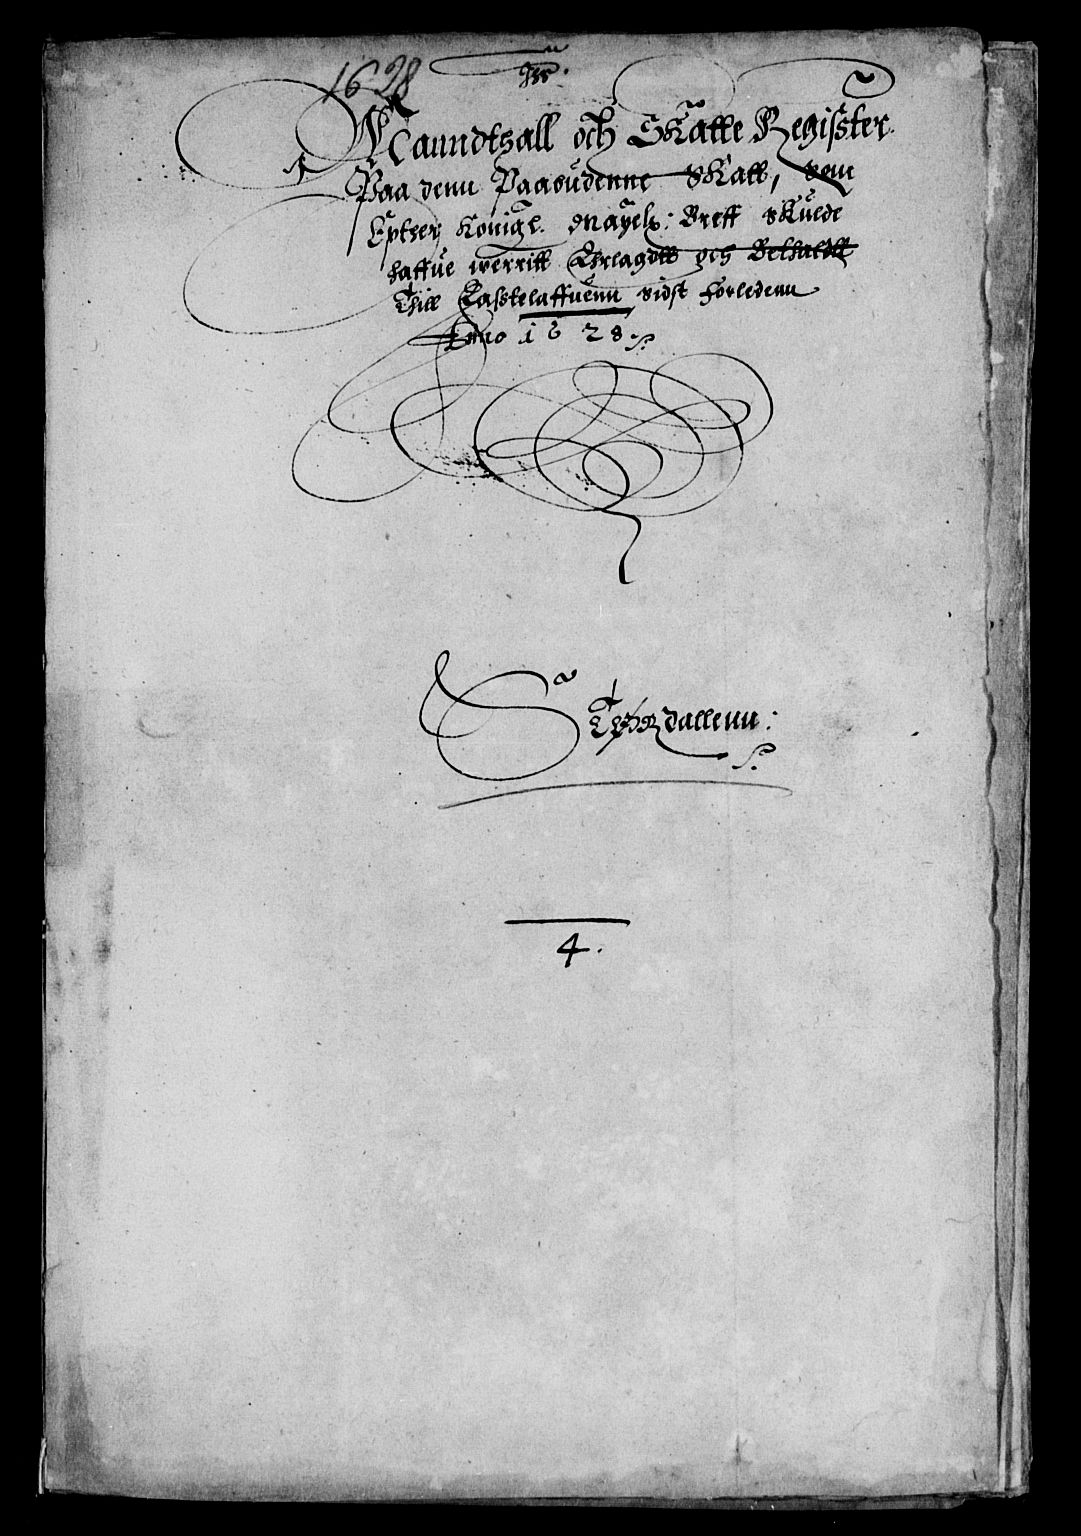 1628
Manndthall och Skatte Register
Paa denn Paabüdenne Skatt, som
Epther Konigl. Mayetz: Breff Skülde
haffue werrit Ehrlagdtt och Bethaldtt
Thill Fasstelaffuenn sidst forledenn
Anno 1628
Stiørdallenn:
4.